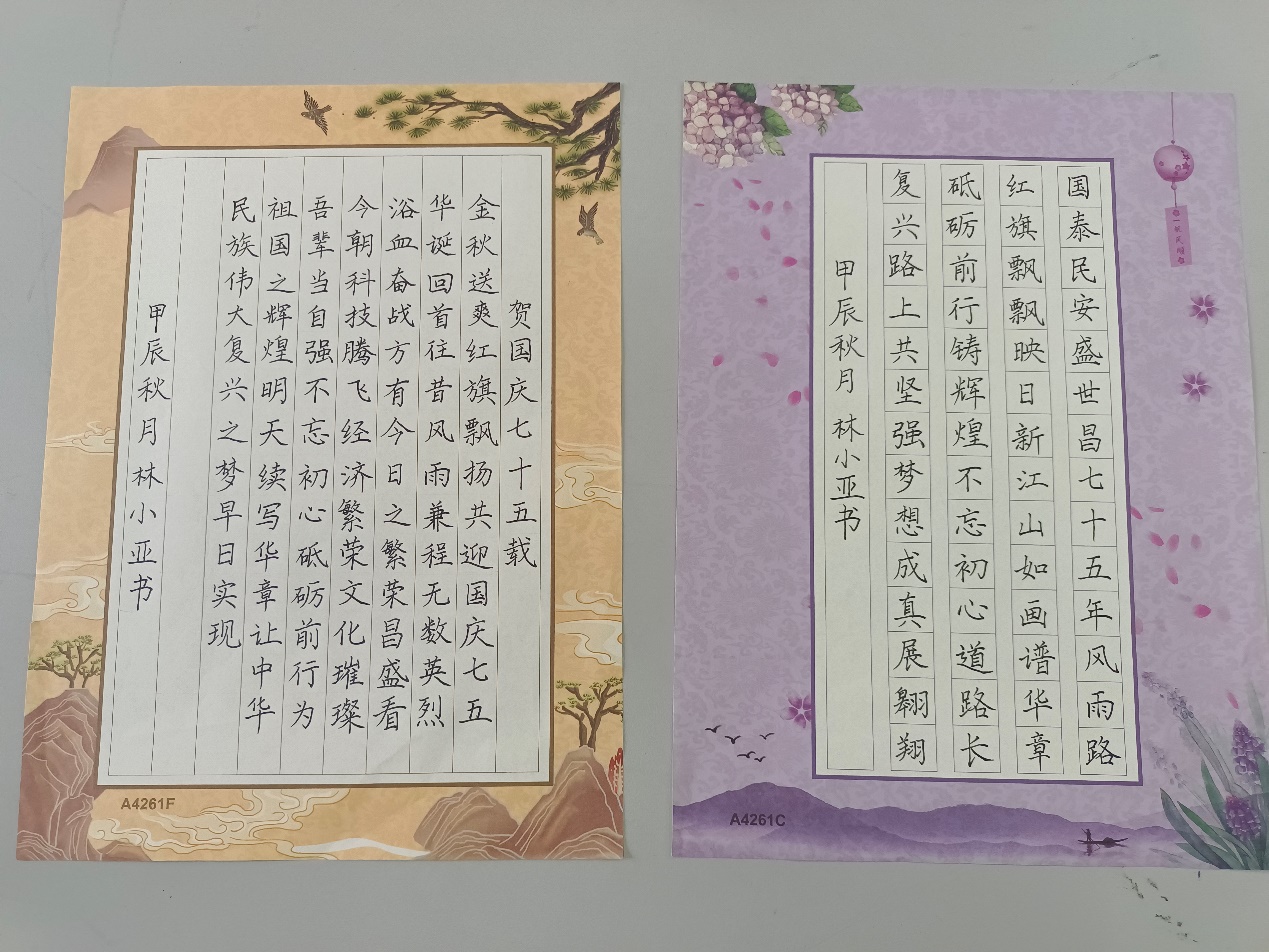 贺国庆七十五载
金秋送爽红旗飘扬共迎国庆七五
华诞回首往昔风雨兼程无数英烈
浴血奋战方有今日之繁荣昌盛看
今朝科技腾飞经济繁荣文化璀璨
吾辈当自强不忘初心砥砺前行为
祖国之辉煌明天续写华章让中华
民族伟大复兴之梦早日实现
甲辰秋月林小亚书
A4261F
国泰民安盛世昌七十五年风雨路
红旗飘飘映日新江山如画谱华章
砥砺前行铸辉煌不忘初心道路长
复兴路上共坚强梦想成真展翱翔
甲辰秋月 林小亚书
A4261C